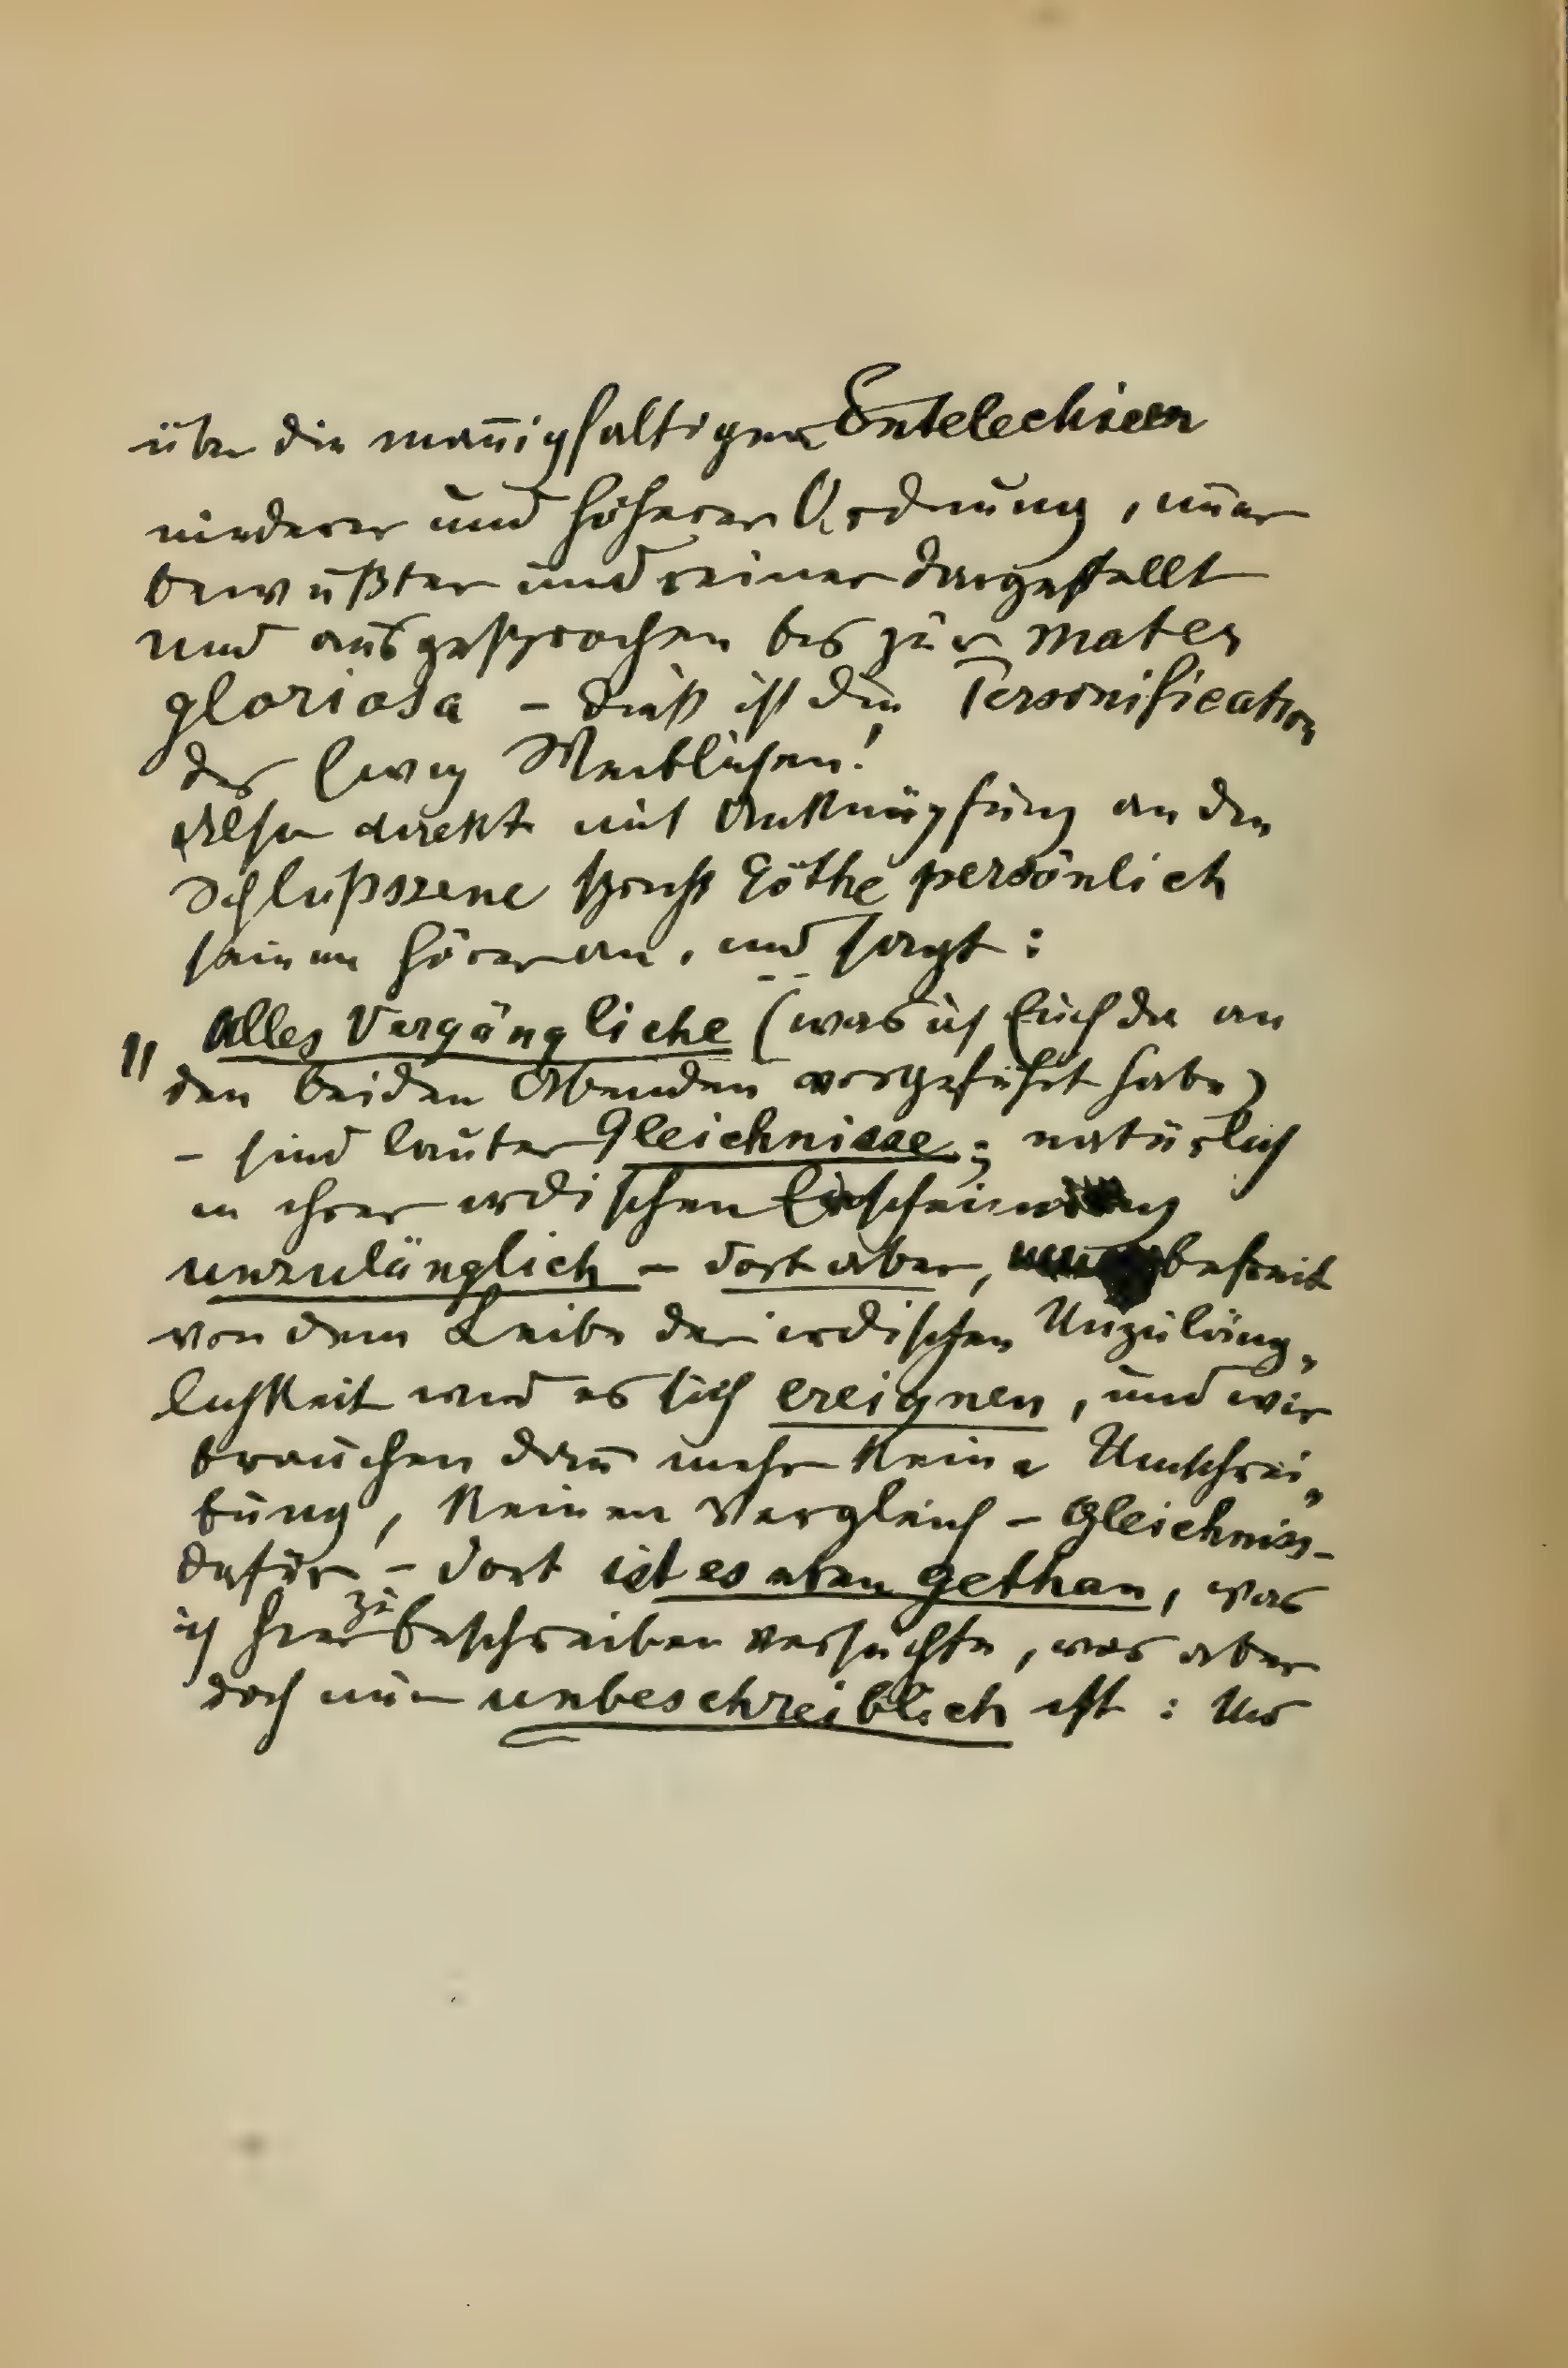 über die mañigfaltigen Entelechieen
niederer und höherer Ordnung, im̄er
bewußter und reiner dargestellt
und ausgesprochen bis zur Mater
gloriosa – dieß ist die Personification
des Ewig Weiblichen!
Also direkt mit Anknüpfung an die
Schlußszene spricht Göthe persönlich
seinen Hörer an, und sagt:
" Alles Vergängliche (was ich Euch da an
den beiden Abenden vorgeführt habe)
– sind lauter Gleichnisse; natürlich
in ihrer irdischen Erscheinung
unzulänglich – dort aber, befreit
von dem Leibe der irdischen Unzuläng„
lichkeit wird es sich ereignen, und wir
brauchen dan̄ mehr keine Umschrei„
bung, keinen Vergleich – Gleichniss –
dafür – dort ist es eben gethan, was
ich hier zu beschreiben versuchte, was aber
doch nur unbeschreiblich ist: Und